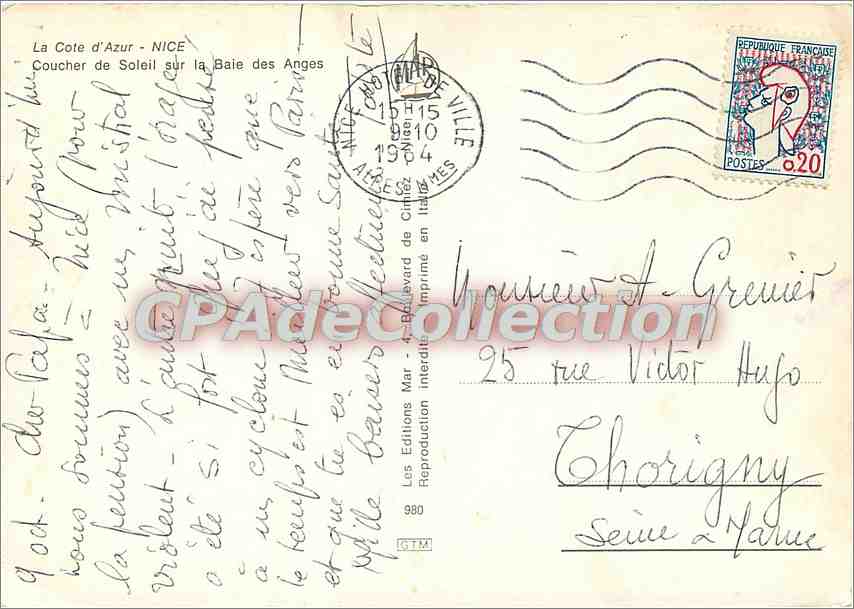 La Cote d'Azur - NICE
Coucher de Soleil sur la Baie des Anges
9 oct. Cher Papa = Aujourd'hui
nous sommes à Nice (pour
la pension) avec un mistral
violent - L'autre nuit l'orage
a été si fort que j'ai pensé
à un cyclone. J'espère que
le temps est meilleur vers Paris -
et que tu es en bonne santé
Mille baisers affectueux
MAR
Les Editions Mar - 4, Boulevard de Cimiez - Nice
Reproduction interdite - Imprimé en Italie
980
GTM
NICE HOTEL DE VILLE
15H15
9-10
19 4
ALPES MMES
REPUBLIQUE FRANÇAISE
POSTES
0,20
Monsieur A. Grenier
25 rue Victor Hugo
Thorigny
Seine & Marne
CPAdeCollection